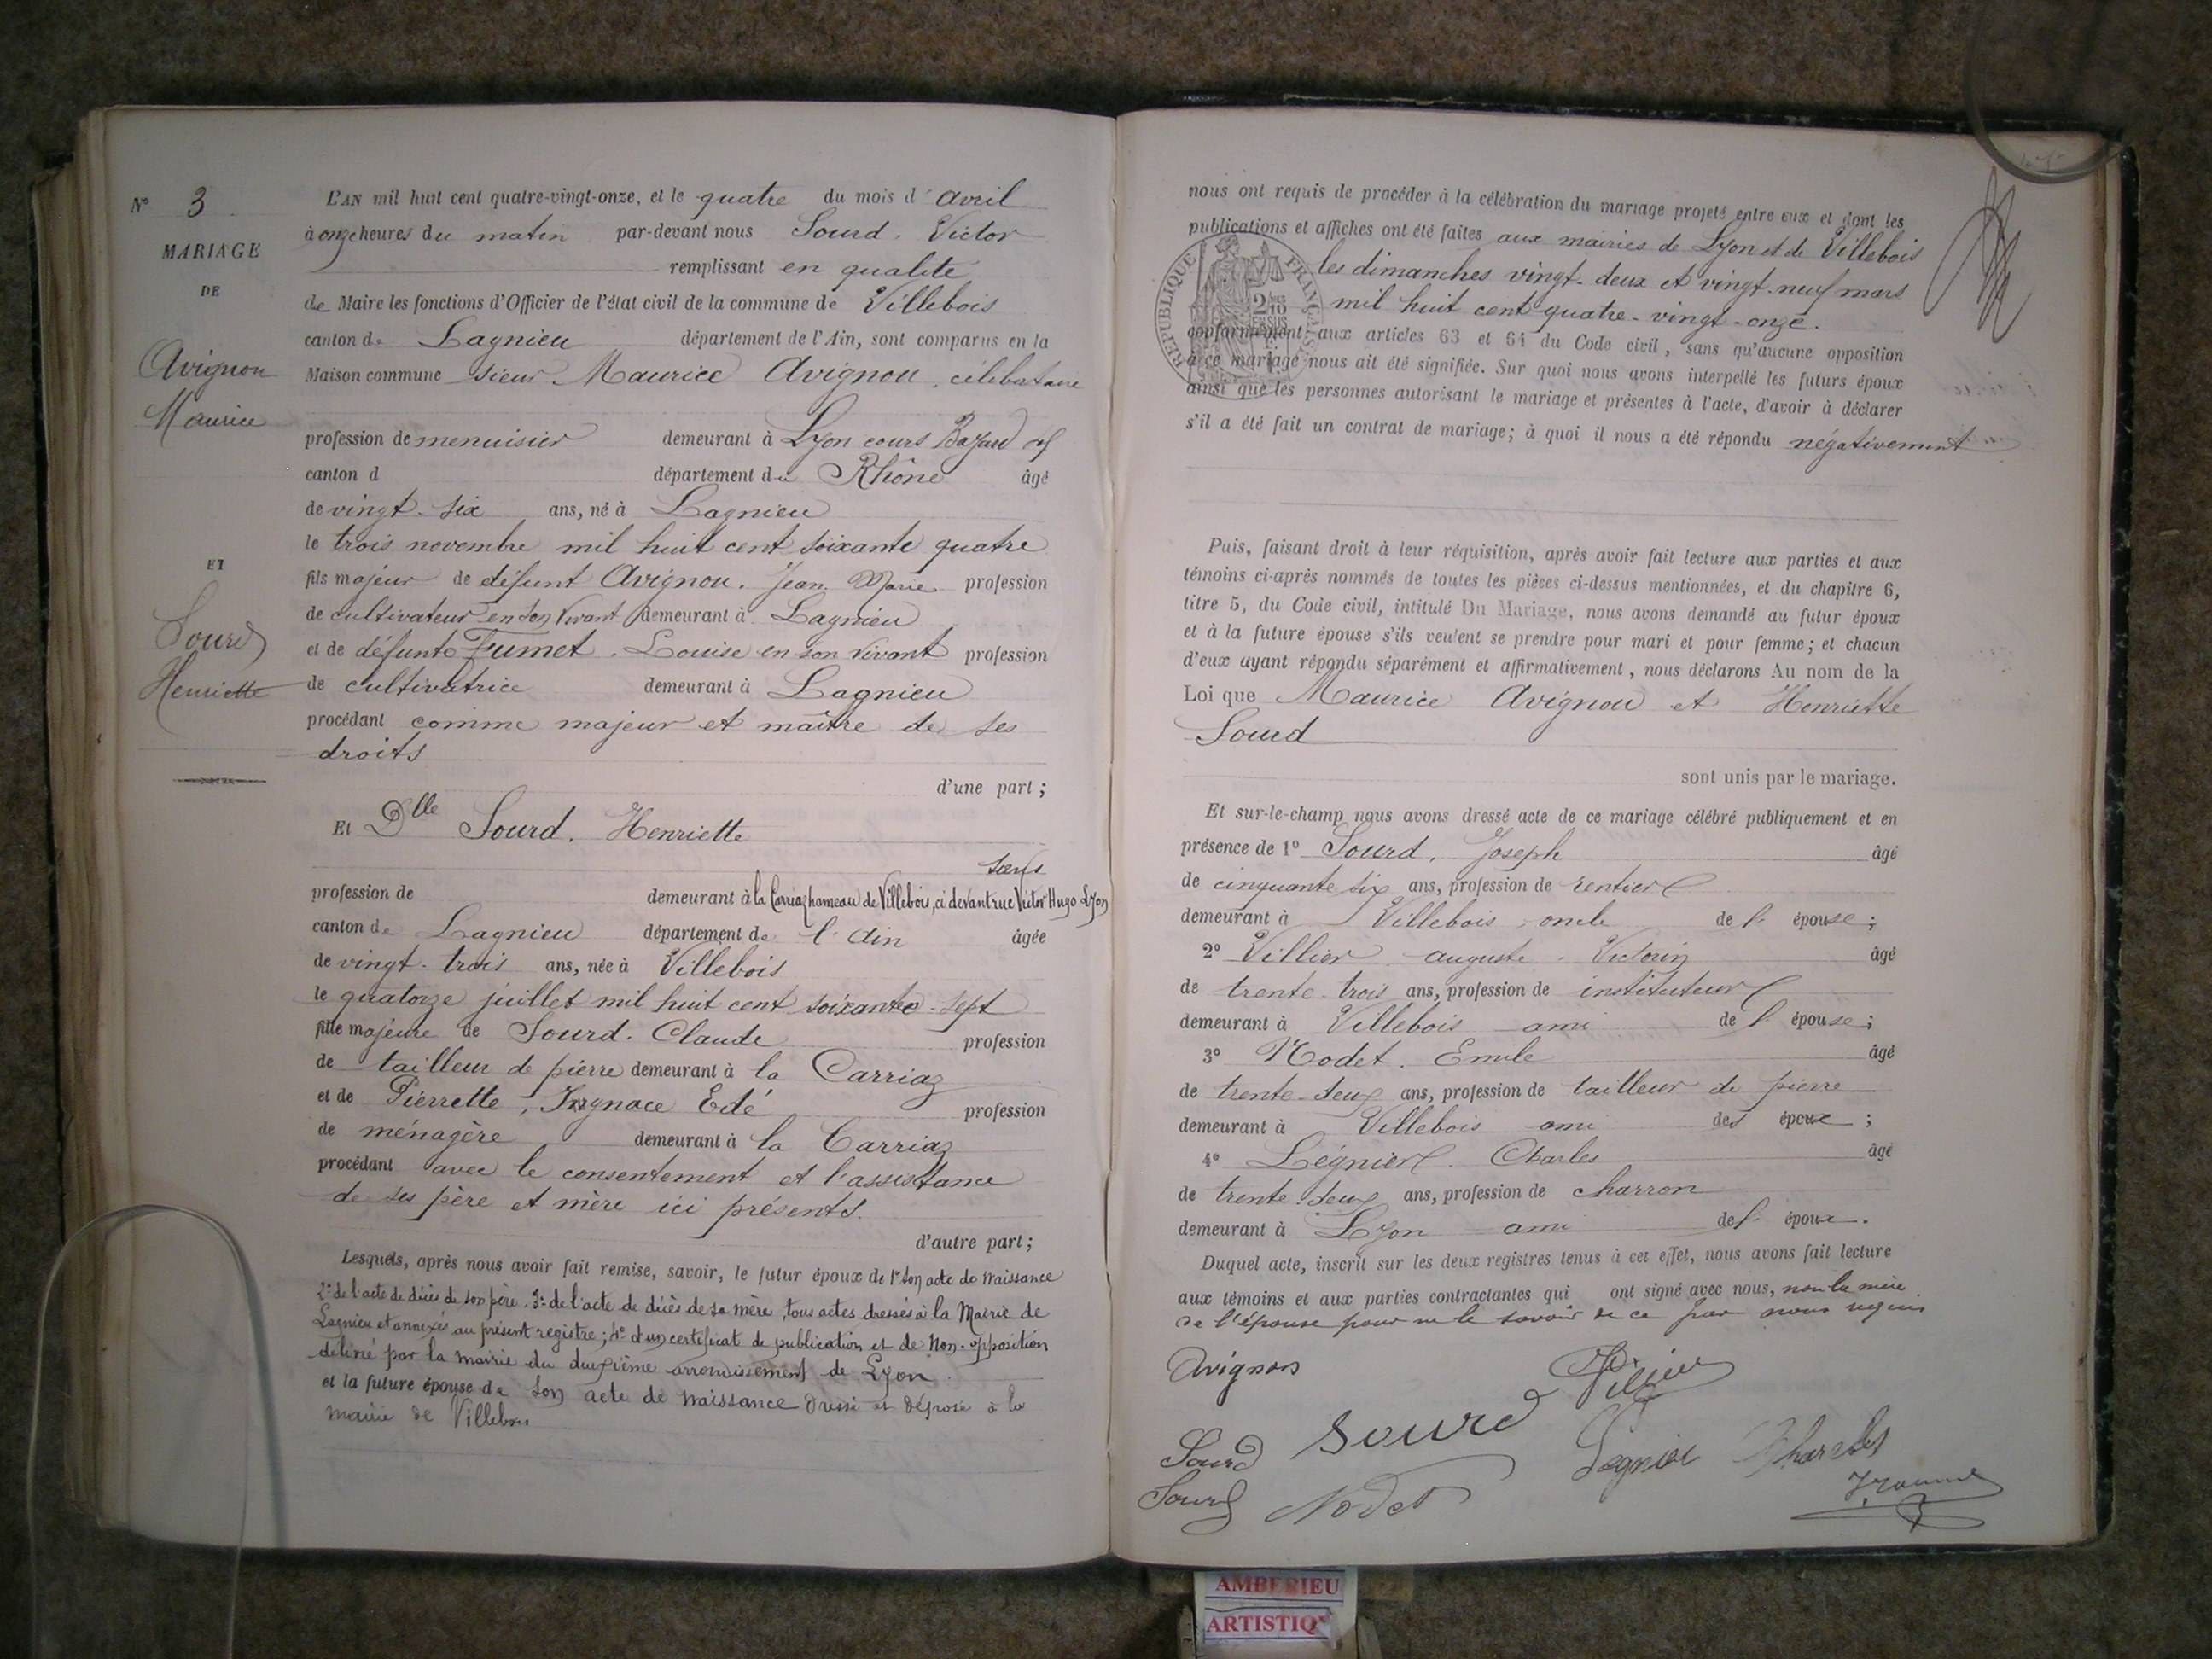 N° 3
MARIAGE
DE
Avignon
Maurice
ET
Sourd
Henriette
L'AN mil huit cent quatre-vingt-onze, et le quatre du mois d'avril
à onze heures du matin par-devant nous Sourd. Victor
remplissant en qualité
de Maire les fonctions d'Officier de l'état civil de la commune de Villebois
canton de Lagnieu département de l'Ain, sont comparus en la
Maison commune sieur Maurice Avignon, célibataire
profession de menuisier demeurant à Lyon cours
canton d département du Rhône âgé
de vingt-six ans, né à Lagnieu
le trois novembre mil huit cent soixante quatre
fils majeur de défunt Avignon. Jean Marie profession
de cultivateur en son vivant demeurant à Lagnieu
et de défunte Fumet. Louise en son vivant profession
de cultivatrice demeurant à Lagnieu
procédant comme majeur et maître de ses
droits
d'une part ;
Et Dlle Sourd. Henriette
sans
profession de demeurant à la Carriaz hameau de Villebois, ci devant rue Victor Hugo Lyon
canton de Lagnieu département de l'Ain âgée
de vingt-trois ans, née à Villebois
le quatorze juillet mil huit cent soixante-sept
fille majeure de Sourd. Claude profession
de tailleur de pierre demeurant à la Carriaz
et de Pierrette, Edé profession
de ménagère demeurant à la Carriaz
procédant avec le consentement et l'assistance
de ses père et mère ici présents.
d'autre part ;
Lesquels, après nous avoir fait remise, savoir, le futur époux de 1° son acte de naissance
2° de l'acte de décès de son père. 3° de l'acte de décès de sa mère, tous actes dressés à la Mairie de
Lagnieu et annexés au présent registre ; 4° d'un certificat de publication et de non-opposition
délivré par la mairie du deuxième arrondissement de Lyon.
et la future épouse de son acte de naissance dressé et déposé à la
mairie de Villebois
nous ont requis de procéder à la célébration du mariage projeté entre eux et dont les
publications et affiches ont été faites aux mairies de Lyon et de Villebois
les dimanches vingt-deux et vingt-neuf mars
mil huit cent quatre-vingt-onze.
RÉPUBLIQUE FRANÇAISE
conformément aux articles 63 et 64 du Code civil, sans qu'aucune opposition
à ce mariage nous ait été signifiée. Sur quoi nous avons interpellé les futurs époux
ainsi que les personnes autorisant le mariage et présentes à l'acte, d'avoir à déclarer
s'il a été fait un contrat de mariage ; à quoi il nous a été répondu négativement
Puis, faisant droit à leur réquisition, après avoir fait lecture aux parties et aux
témoins ci-après nommés de toutes les pièces ci-dessus mentionnées, et du chapitre 6,
titre 5, du Code civil, intitulé Du Mariage, nous avons demandé au futur époux
et à la future épouse s'ils veulent se prendre pour mari et pour femme ; et chacun
d'eux ayant répondu séparément et affirmativement, nous déclarons Au nom de la
Loi que Maurice Avignon et Henriette
Sourd
sont unis par le mariage.
Et sur-le-champ nous avons dressé acte de ce mariage célébré publiquement et en
présence de 1° Sourd. Joseph âgé
de cinquante six ans, profession de rentier
demeurant à Villebois oncle de l' épouse ;
2° Villier auguste. Victorin âgé
de trente-trois ans, profession de instituteur
demeurant à Villebois ami de l' épouse ;
3° Nodet. Emile âgé
de trente-deux ans, profession de tailleur de pierre
demeurant à Villebois ami des époux ;
4° Légnier. Charles âgé
de trente-deux ans, profession de charron
demeurant à Lyon ami de l' époux.
Duquel acte, inscrit sur les deux registres tenus à cet effet, nous avons fait lecture
aux témoins et aux parties contractantes qui ont signé avec nous, non la mère
de l'épouse pour ne le savoir de ce par nous requis
Avignon
Villier
Sourd
Sourd
Legnier Charles
Sourd
Nodet
AMBERIEU
ARTISTIQ